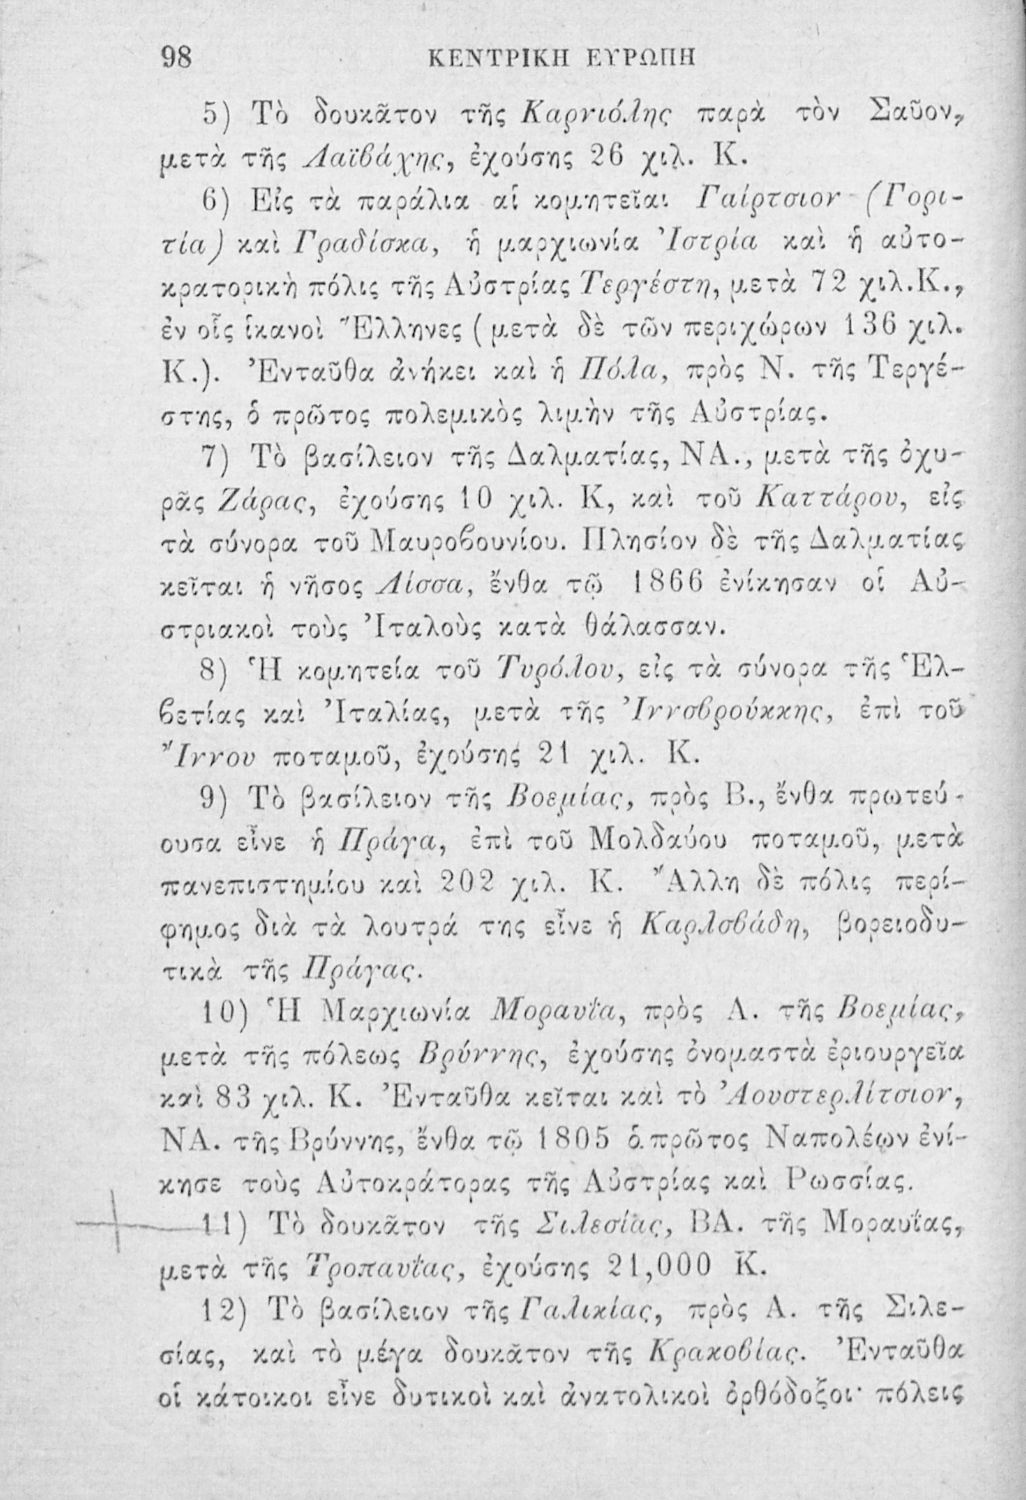 98 ΚΕΝΤΡΙΚΗ ΕΥΡΩΠΗ
5) Τὸ δουκᾶτον τῆς Καρνιόλης παρὰ τὸν Σαῦον,
μετὰ τῆς Λαϊβάχης, ἐχούσης 26 χιλ. Κ.
6) Εἰς τὰ παράλια αἱ κομητεῖαι Γαίρτσιον (Γορι-
τία) καὶ Γραδίσκα, ἡ μαρχιωνία Ἰστρία καὶ ἡ αὐτο-
κρατορικὴ πόλις τῆς Αὐστρίας Τεργέστη, μετὰ 72 χιλ.Κ.,
ἐν οἷς ἱκανοὶ Ἕλληνες (μετὰ δὲ τῶν περιχώρων 136 χιλ.
Κ.). Ἐνταῦθα ἀνήκει καὶ ἡ Πόλα, πρὸς Ν. τῆς Τεργέ-
στης, ὁ πρῶτος πολεμικὸς λιμὴν τῆς Αὐστρίας.
7) Τὸ βασίλειον τῆς Δαλματίας, ΝΑ., μετὰ τῆς ὀχυ-
ρᾶς Ζάρας, ἐχούσης 10 χιλ. Κ, καὶ τοῦ Καττάρου, εἰς
τὰ σύνορα τοῦ Μαυροβουνίου. Πλησίον δὲ τῆς Δαλματίας
κεῖται ἡ νῆσος Λίσσα, ἔνθα τῷ 1866 ἐνίκησαν οἱ Αὐ-
στριακοὶ τοὺς Ἰταλοὺς κατὰ θάλασσαν.
8) Ἡ κομητεία τοῦ Τυρόλου, εἰς τὰ σύνορα τῆς Ἑλ-
βετίας καὶ Ἰταλίας, μετὰ τῆς Ἰννσβρούκκης, ἐπὶ τοῦ
Ἴννου ποταμοῦ, ἐχούσης 21 χιλ. Κ.
9) Τὸ βασίλειον τῆς Βοεμίας, πρὸς Β., ἔνθα πρωτεύ-
ουσα εἶνε ἡ Πράγα, ἐπὶ τοῦ Μολδαύου ποταμοῦ, μετὰ
πανεπιστημίου καὶ 202 χιλ. Κ. Ἄλλη δὲ πόλις περί-
φημος διὰ τὰ λουτρά της εἶνε ἡ Καρλσβάδη, βορειοδυ-
τικὰ τῆς Πράγας.
10) Ἡ Μαρχιωνία Μοραυΐα, πρὸς Α. τῆς Βοεμίας,
μετὰ τῆς πόλεως Βρύννης, ἐχούσης ὀνομαστὰ ἐριουργεῖα
καὶ 83 χιλ. Κ. Ἐνταῦθα κεῖται καὶ τὸ Ἀουστερλίτσιον,
ΝΑ. τῆς Βρύννης, ἔνθα τῷ 1805 ὁ πρῶτος Ναπολέων ἐνί-
κησε τοὺς Αὐτοκράτορας τῆς Αὐστρίας καὶ Ῥωσσίας.
11) Τὸ δουκᾶτον τῆς Σιλεσίας, ΒΑ. τῆς Μοραυΐας,
μετὰ τῆς Τροπαυΐας, ἐχούσης 21,000 Κ.
12) Τὸ βασίλειον τῆς Γαλικίας, πρὸς Α. τῆς Σιλε-
σίας, καὶ τὸ μέγα δουκᾶτον τῆς Κρακοβίας. Ἐνταῦθα
οἱ κάτοικοι εἶνε δυτικοὶ καὶ ἀνατολικοὶ ὀρθόδοξοι· πόλεις